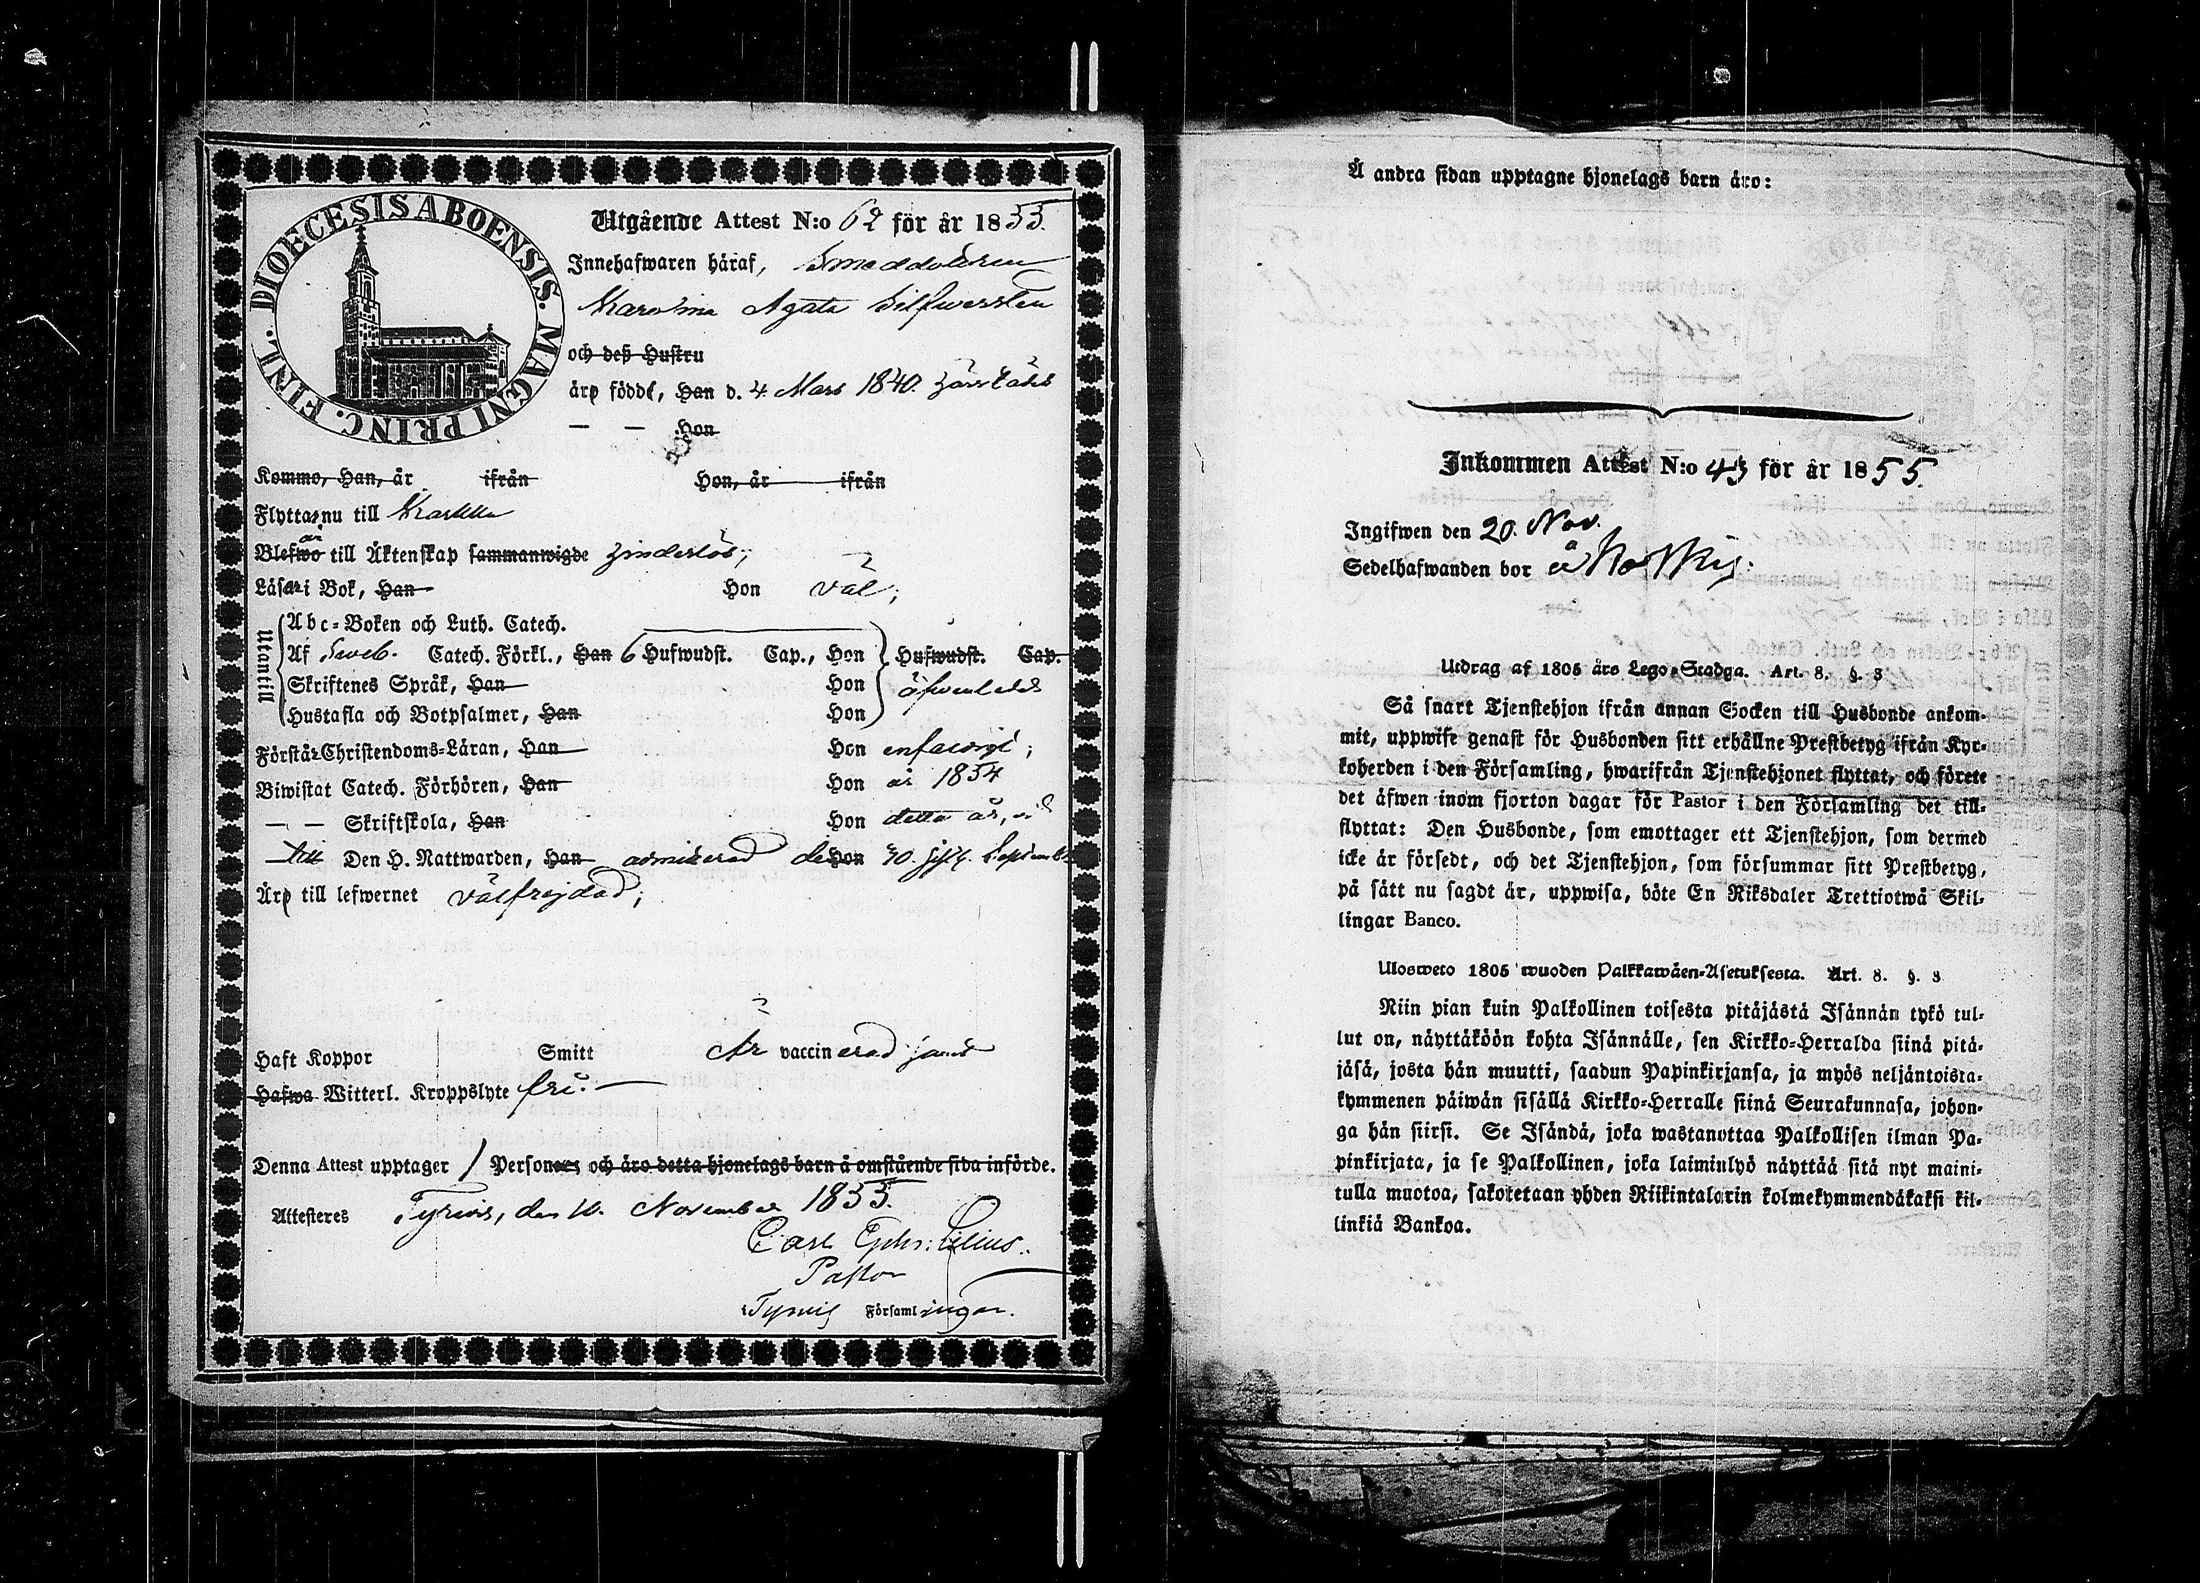 DIOECESIS ABOENSIS. MAGNI PRINC. FINL.
Utgående Attest N:o 62 för år 1855.
Innehafwaren häraf, Smeddottren
Karolina Agata Silfwersten
och deß Hustru
äro födde, Han d. 4 Mars 1840. härstädes
— — Hon
Kommo, Han, år ifrån Hon, år ifrån
Flyttar nu till
Blefwo är till Äktenskap sammanwigde hinderlös;
Läser i Bok, Han Hon väl;
Utantill
Abc-Boken och Luth. Catech.
Af Sweb. Catech. Förkl., Han 6 Hufwudst. Cap., Hon Hufwudst. Cap.
Skriftenes Språk, Han Hon äfwenledes
Hustafla och Botpsalmer, Han Hon
Förstår Christendoms-Läran, Han Hon enfaldigt;
Biwistat Catech. Förhören, Han Hon år 1854
— — Skriftskola, Han Hon detta år, och
till Den H. Nattwarden, Han admitterad den Hon 30. September
Äro till lefwernet välfrejdad;
Haft Koppor Smitt Är vaccinerad
Hafwa Witterl. Kroppslyte fri. —
Denna Attest upptager 1 Personer och äro detta hjonelags barn å omstående sida införde.
Attesteres Tyrvis, den 10. November 1855.
Carl Ephr: Lilius.
Pastor
i Tyrvis Församlingar.
Å andra sidan upptagne hjonelags barn äro:
Inkommen Attest N:o 43 för år 1855.
Ingifwen den 20. Nov.
Sedelhafwanden bor å
Utdrag af 1805 års Lego-Stadga. Art. 8. §. 3
Så snart Tjenstehjon ifrån annan Socken till Husbonde ankom-
mit, uppwise genast för Husbonden sitt erhållne Prestbetyg ifrån Kyr-
koherden i den Församling, hwarifrån Tjenstehjonet flyttat, och förete
det äfwen inom fjorton dagar för Pastor i den Församling det till-
flyttat: Den Husbonde, som emottager ett Tjenstehjon, som dermed
icke är försedt, och det Tjenstehjon, som försummar sitt Prestbetyg,
på sätt nu sagdt är, uppwisa, böte En Riksdaler Trettiotwå Skil-
lingar Banco.
Ulosweto 1805 wuoden Palkkawäen-Asetuksesta. Art. 8. §. 3
Niin pian kuin Palkollinen toisesta pitäjästä Isännän tykö tul-
lut on, näyttäköön kohta Isännälle, sen Kirkko-Herralda siinä pitä-
jäsä, josta hän muutti, saadun Papinkirjansa, ja myös neljäntoista-
kymmenen päiwän sisällä Kirkko-Herralle siinä Seurakunnasa, johon-
ga hän siirsi. Se Isändä, joka wastanottaa Palkollisen ilman Pa-
pinkirjata, ja se Palkollinen, joka laiminlyö näyttää sitä nyt maini-
tulla muotoa, sakotetaan yhden Riikintalarin kolmekymmendäkaksi kil-
linkiä Bankoa.